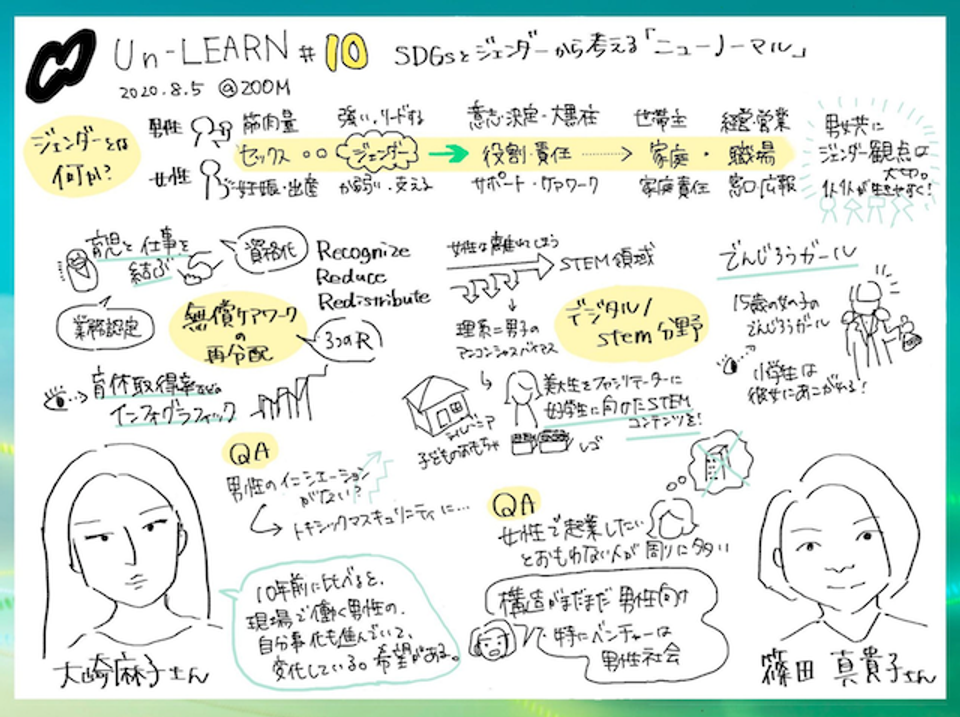 Un-LEARN #10 SDGsとジェンダーから考える「ニューノーマル」
2020.8.5 @ZOOM
ジェンダーとは
何か?
男性 筋肉量 強い、リードする 意志・決定・大黒柱 世帯主 経営・営業
セックス ジェンダー → 役割・責任 → 家庭・職場
女性 妊娠・出産 か弱い、支える サポート・ケアワーク 家庭責任 窓口・広報
男女共に
ジェンダー観点は
大切。
生きやすく!
育児と仕事を
結ぶ
資格化
業務認定
Recognize
Reduce
Redistribute
無償ケアワーク
の
再分配
3つのR
育休取得率などの
インフォグラフィック
女性は離れてしまう
STEM領域
理系=男子の
アンコンシャスバイアス
デジタル/
stem分野
シルバニア
子どものおもちゃ
レゴ
美大生をファシリテーターに
女学生に向けたSTEM
コンテンツを!
でんじろうガール
15歳の女の子の
でんじろうガール
小学生は
彼女にあこがれる!
QA
男性のイニシエーション
がない?
トキシックマスキュリニティに…
QA
女性で起業したい
とおもわない人が周りに多い
構造がまだまだ男性向け
特にベンチャーは
男性社会
10年前に比べると、
現場で働く男性の、
自分事化も進んでいて、
変化している。希望がある。
大崎麻子さん
篠田 真貴子さん